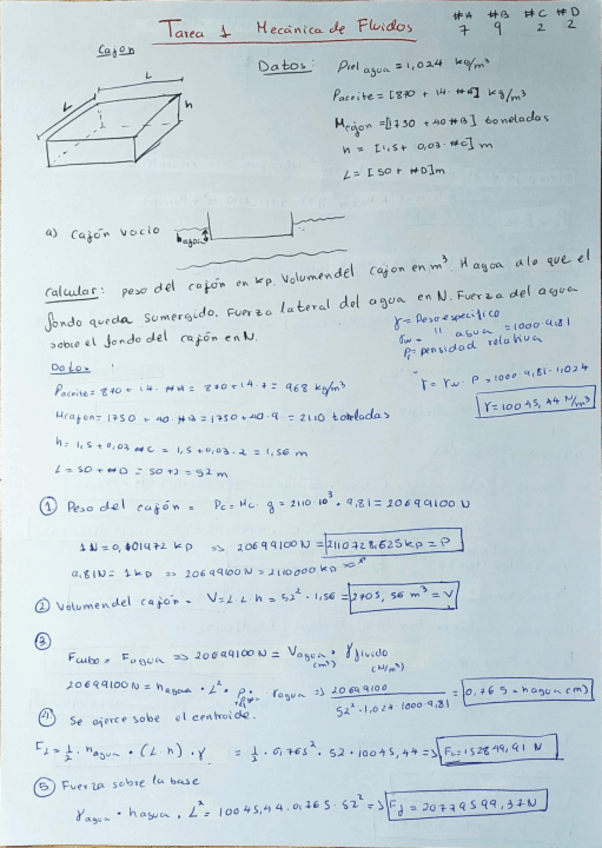 Tarea 1 Mecánica de Fluidos
#A #B #C #D
7 9 2 2
Cajon
L
L
h
Datos: ρrel agua = 1,024 kg/m³
ρaceite = [870 + 14·#A] kg/m³
Mcajon = [1750 + 40 #B] toneladas
h = [1,5 + 0,03·#C] m
L = [50 + #D] m
a) Cajón vacio
hagua
Calcular: peso del cajón en kp. Volumen del cajon en m³. H agua a la que el
fondo queda sumergido. Fuerza lateral del agua en N. Fuerza del agua
sobre el fondo del cajón en N.
γ = Peso especifico
γw = " agua = 1000·9,81
ρ = Densidad relativa
γ = γw·ρ = 1000·9,81·1,024
γ = 10045,44 N/m³
Datos
ρaceite = 870 + 14·#A = 870 + 14·7 = 968 kg/m³
Mcajon = 1750 + 40·#B = 1750 + 40·9 = 2110 toneladas
h = 1,5 + 0,03·#C = 1,5 + 0,03·2 = 1,56 m
L = 50 + #D = 50 + 2 = 52 m
① Peso del cajón = Pc = Mc·g = 2110·10³·9,81 = 20699100 N
1N = 0,101972 kp ⇒ 20699100 N = 2110728,625 kp = P
9,81N = 1kp ⇒ 20699100N = 2110000 kp = P
② Volumen del cajón = V = L·L·h = 52²·1,56 = 4205,56 m³ = V
③
Fcubo = Fagua ⇒ 20699100 N = Vagua · γfluido
(m³) (N/m³)
20699100 N = hagua · L² · ρ · γagua ⇒ 20699100 / 52²·1,024·1000·9,81 = 0,765 = hagua (m)
④ Se ejerce sobe el centroide.
FL = 1/2 · hagua · (L·h) · γ = 1/2 · 0,765² · 52 · 10045,44 ⇒ FL = 152849,91 N
⑤ Fuerza sobre la base
γagua · hagua · L² = 10045,44 · 0,765 · 52² ⇒ Ff = 20779599,37 N